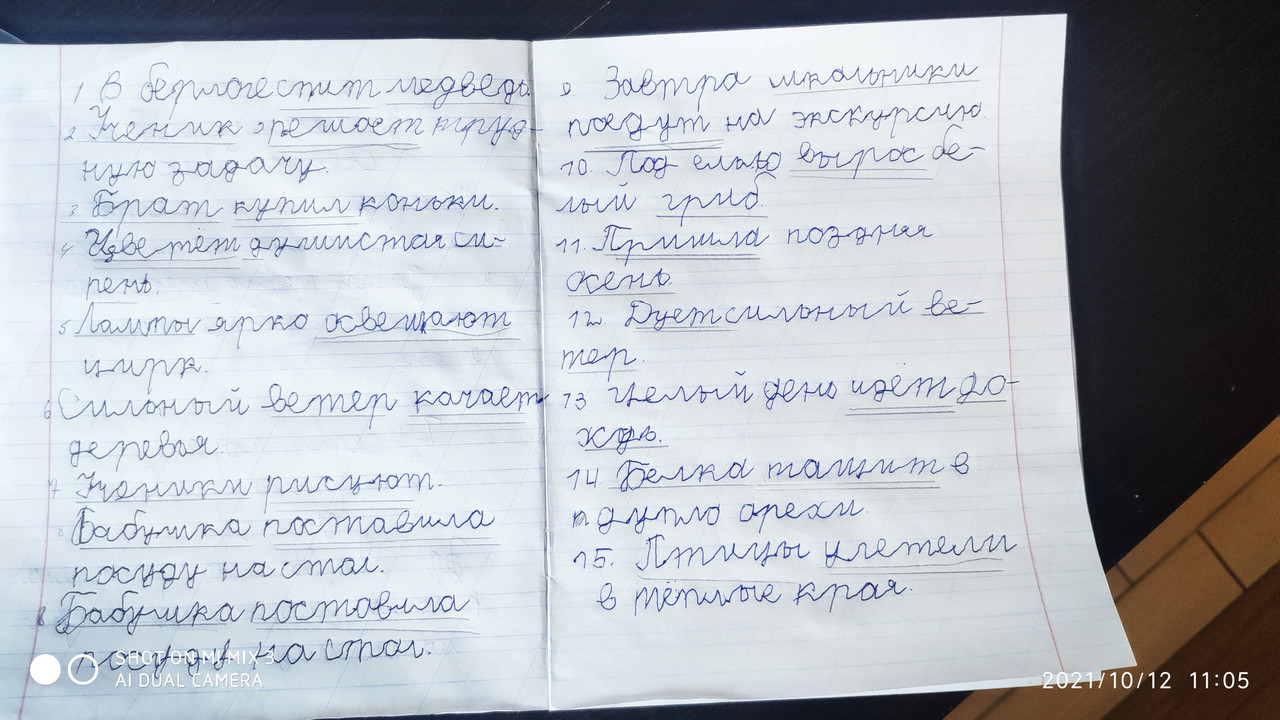 1 В берлоге спит медведь
2 Ученик решает труд-
ную задачу.
3 Брат купил коньки.
4 Цветёт душистая си-
рень.
5 Лампы ярко освещают
цирк.
6 Сильный ветер качает
деревья.
7 Ученики рисуют.
8 Бабушка поставила
посуду на стол.
8 Бабушка поставила
посуду на стол.
9 Завтра школьники
поедут на экскурсию.
10. Под елью вырос бе-
лый гриб.
11. Пришла поздняя
осень.
12. Дует сильный ве-
тер.
13 Целый день идёт до-
ждь.
14. Белка тащит в
дупло орехи.
15. Птицы улетели
в тёплые края.
SHOT ON MI MIX 3
AI DUAL CAMERA
2021/10/12 11:05